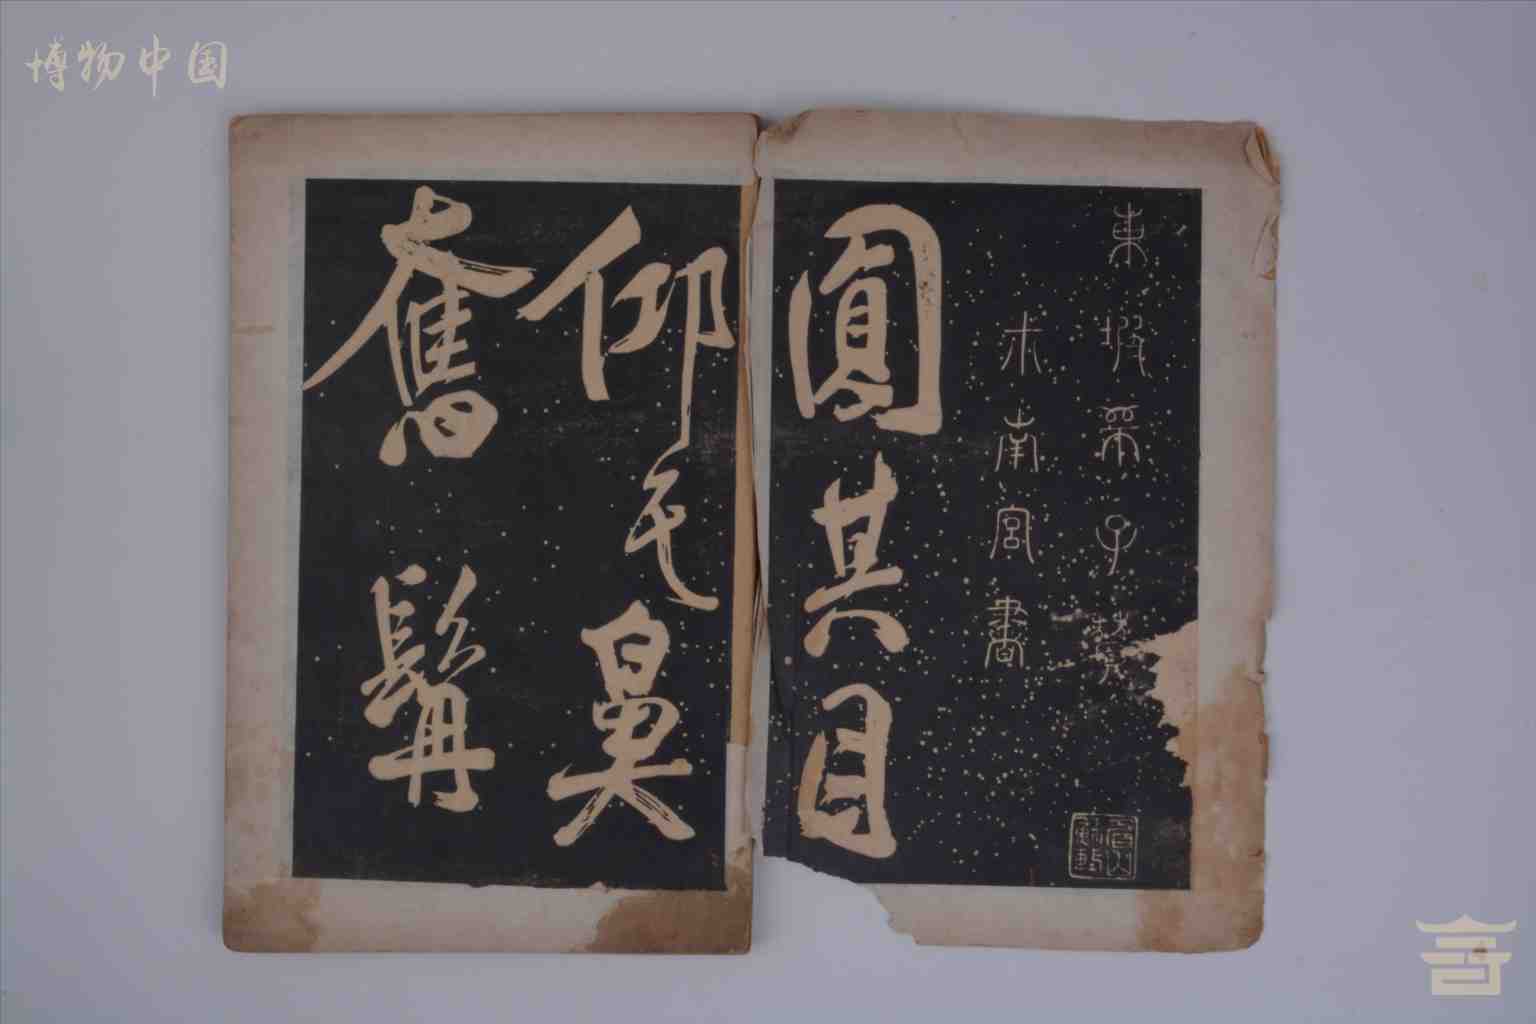 博物中国
東坡師子贊
米南宮書
眉山蘇軾
圓其目
仰其鼻
奮髯